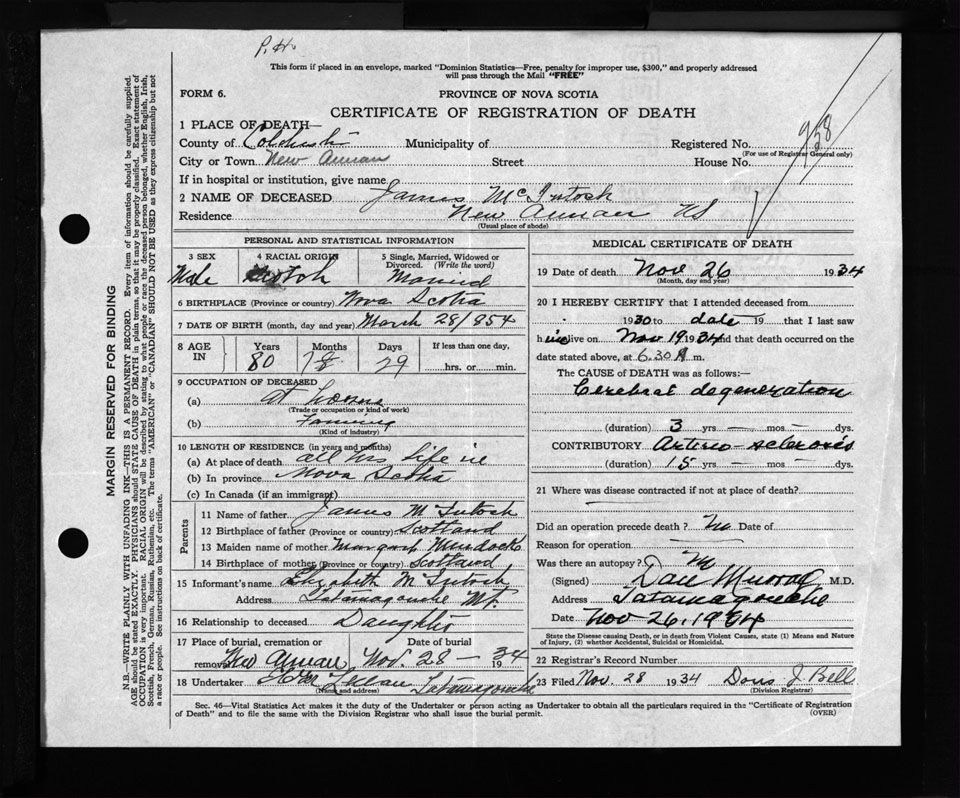 P. H.
This form if placed in an envelope, marked "Dominion Statistics—Free, penalty for improper use, $300," and properly addressed
will pass through the Mail "FREE"
FORM 6.
PROVINCE OF NOVA SCOTIA
CERTIFICATE OF REGISTRATION OF DEATH
958
MARGIN RESERVED FOR BINDING
N.B.—WRITE PLAINLY WITH UNFADING INK—THIS IS A PERMANENT RECORD. Every item of information should be carefully supplied.
AGE should be stated EXACTLY. PHYSICIANS should STATE CAUSE OF DEATH in plain terms, so that it may be properly classified. Exact statement of
OCCUPATION is very important. RACIAL ORIGIN will be described by stating to what people or race the deceased person belonged, whether English, Irish,
Scottish, French, German, Russian, Ruthenian, etc. The terms "AMERICAN" or "CANADIAN" SHOULD NOT BE USED as they express citizenship but not
a race or people. See instructions on back of certificate.
1 PLACE OF DEATH—
County of Colchester Municipality of Registered No.
(For use of Registrar General only)
City or Town New Annan Street House No.
If in hospital or institution, give name
2 NAME OF DECEASED James McIntosh
Residence New Annan NS
(Usual place of abode)
PERSONAL AND STATISTICAL INFORMATION
3 SEX 4 RACIAL ORIGIN 5 Single, Married, Widowed or
Divorced. (Write the word)
Male Scotch Married
6 BIRTHPLACE (Province or country) Nova Scotia
7 DATE OF BIRTH (month, day and year) March 28/854
8 AGE IN Years Months Days If less than one day,
80 8 29 hrs. or min.
9 OCCUPATION OF DECEASED
(a) at home
(Trade or occupation or kind of work)
(b) Farming
(Kind of industry)
10 LENGTH OF RESIDENCE (in years and months)
(a) At place of death all his life in
(b) In province Nova Scotia
(c) In Canada (if an immigrant)
Parents
11 Name of father James McIntosh
12 Birthplace of father (Province or country) Scotland
13 Maiden name of mother Margaret Murdock
14 Birthplace of mother (Province or country) Scotland
15 Informant's name Elizabeth McIntosh
Address Tatamagouche Mt.
16 Relationship to deceased Daughter
17 Place of burial, cremation or Date of burial
removal New Annan Nov. 28 — 1934
18 Undertaker Tatamagouche
(Name and address)
MEDICAL CERTIFICATE OF DEATH
19 Date of death Nov 26 1934
(Month, day and year)
20 I HEREBY CERTIFY that I attended deceased from
1930 to date 19 that I last saw
h im alive on Nov 19 1934 and that death occurred on the
date stated above, at 6.30 A m.
The CAUSE of DEATH was as follows:—
Cerebral degeneration
(duration) 3 yrs — mos — dys.
CONTRIBUTORY Arterio-sclerosis
(duration) 15 yrs. — mos — dys.
21 Where was disease contracted if not at place of death?
Did an operation precede death? No Date of
Reason for operation
Was there an autopsy? No
(Signed) Dan Murray M.D.
Address Tatamagouche
Date Nov 26, 1934
State the Disease causing Death, or in death from Violent Causes, state (1) Means and Nature
of Injury, (2) whether Accidental, Suicidal or Homicidal.
22 Registrar's Record Number
23 Filed Nov. 28 1934 Doris J. Bell
(Division Registrar)
Sec. 46—Vital Statistics Act makes it the duty of the Undertaker or person acting as Undertaker to obtain all the particulars required in the "Certificate of Registration
of Death" and to file the same with the Division Registrar who shall issue the burial permit.
(OVER)